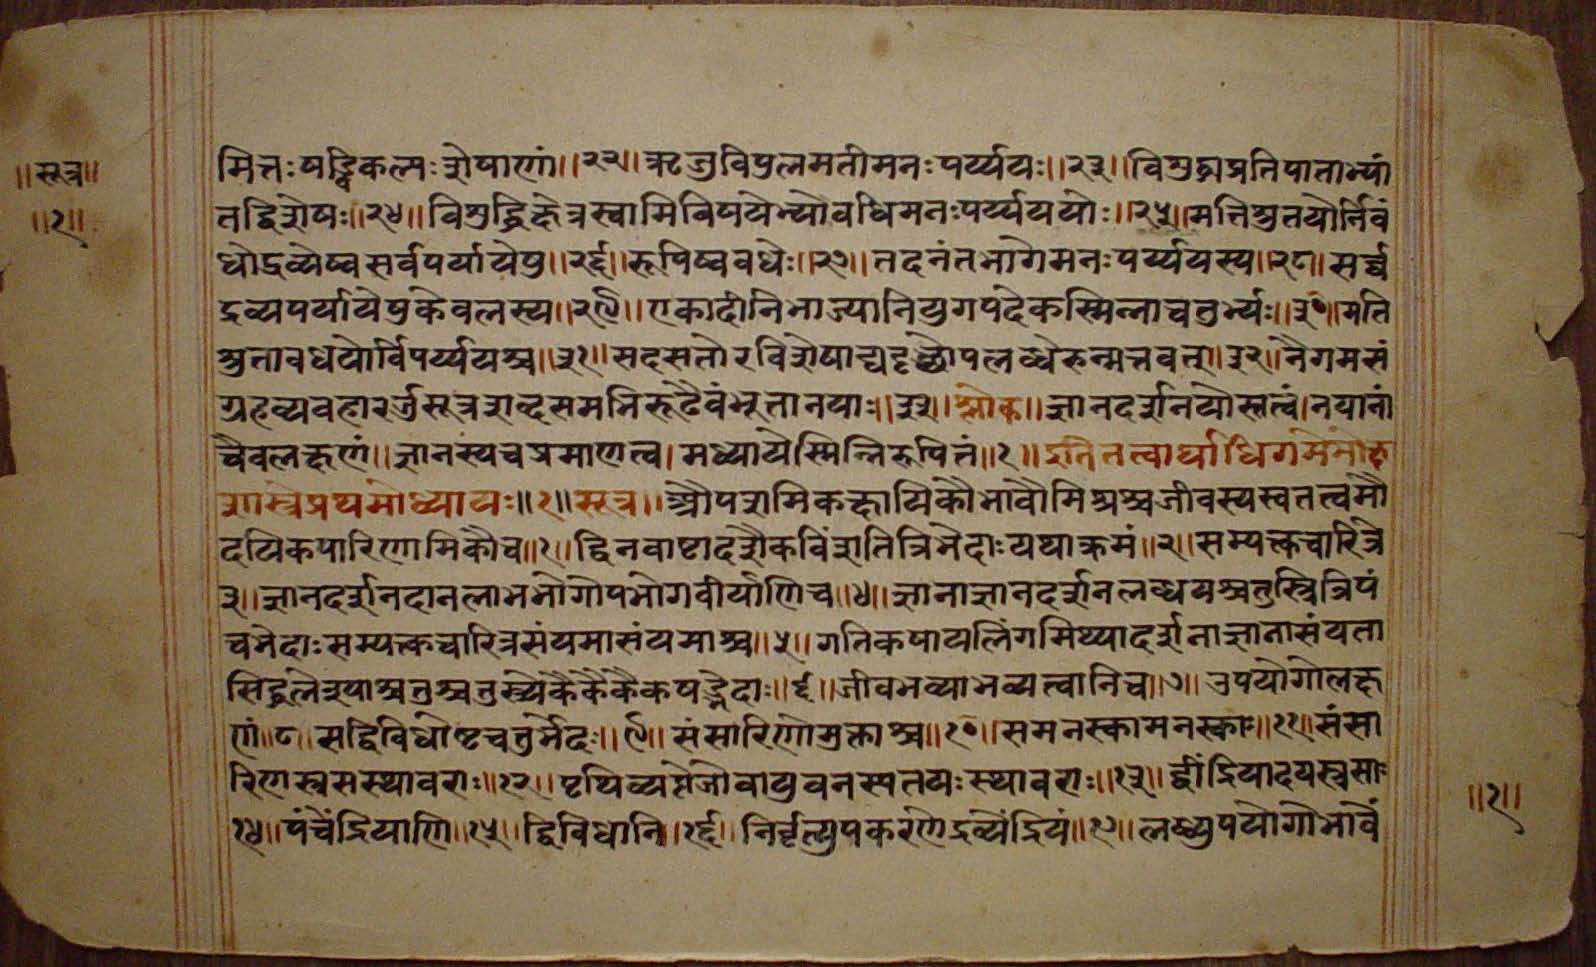 ॥सूत्र॥
॥१॥
मित्तः षड्विकल्पः शेषाणां॥२२॥ ऋजुविपुलमतीमनःपर्य्ययः॥२३॥ विशुद्ध्यप्रतिपाताभ्यां
तद्विशेषः॥२४॥ विशुद्धिक्षेत्रस्वामिविषयेभ्योवधिमनःपर्य्यययोः॥२५॥ मतिश्रुतयोर्निबं
धोद्रव्येष्वसर्वपर्यायेषु॥२६॥ रूपिष्ववधेः॥२७॥ तदनंतभागेमनःपर्य्ययस्य॥२८॥ सर्व्व
द्रव्यपर्यायेषुकेवलस्य॥२९॥ एकादीनिभाज्यानियुगपदेकस्मिन्नाचतुर्भ्यः॥३०॥ मति
श्रुतावधयोर्विपर्य्ययश्च॥३१॥ सदसतोरविशेषाद्यदृच्छोपलब्धेरुन्मत्तवत्॥३२॥ नैगमसं
ग्रहव्यवहारर्जुसूत्रशब्दसमभिरूढैवंभूतानयाः॥३३॥ श्लोक॥ ज्ञानदर्शनयोस्तत्वं।नयानां
चैवलक्षणं॥ ज्ञानस्यचप्रमाणत्व।मध्यायेस्मिन्निरूपितं॥१॥ इतितत्वार्थाधिगमेमोक्ष
शास्त्रेप्रथमोध्यायः॥१॥ सूत्र॥ औपशमिकक्षायिकौभावौमिश्रश्चजीवस्यस्वतत्त्वमौ
दयिकपारिणामिकौच॥१॥ द्विनवाष्टादशैकविंशतित्रिभेदाःयथाक्रमं॥२॥ सम्यक्तचारित्रे
३॥ ज्ञानदर्शनदानलाभभोगोपभोगवीर्याणिच॥४॥ ज्ञानाज्ञानदर्शनलब्धयश्चतुस्त्रित्रिपं
चभेदाःसम्यक्तचारित्रसंयमासंयमाश्च॥५॥ गतिकषायलिंगमिथ्यादर्शनाज्ञानासंयता
सिद्धलेश्याश्चतुश्चतुस्त्र्येकैकैकैकषड्भेदाः॥६॥ जीवभव्याभव्यत्वानिच॥७॥ उपयोगोलक्ष
णं॥८॥ सद्विविधोष्टचतुर्भेदः॥९॥ संसारिणोमुक्ताश्च॥१०॥ समनस्कामनस्काः॥११॥ संसा
रिणस्त्रसस्थावराः॥१२॥ पृथिव्यप्तेजोवायुवनस्पतयःस्थावराः॥१३॥ द्वींद्रियादयस्त्रसाः
१४॥ पंचेंद्रियाणि॥१५॥ द्विविधानि॥१६॥ निर्वृत्युपकरणेद्रव्येंद्रियं॥१७॥ लब्ध्युपयोगौभावें
॥१॥